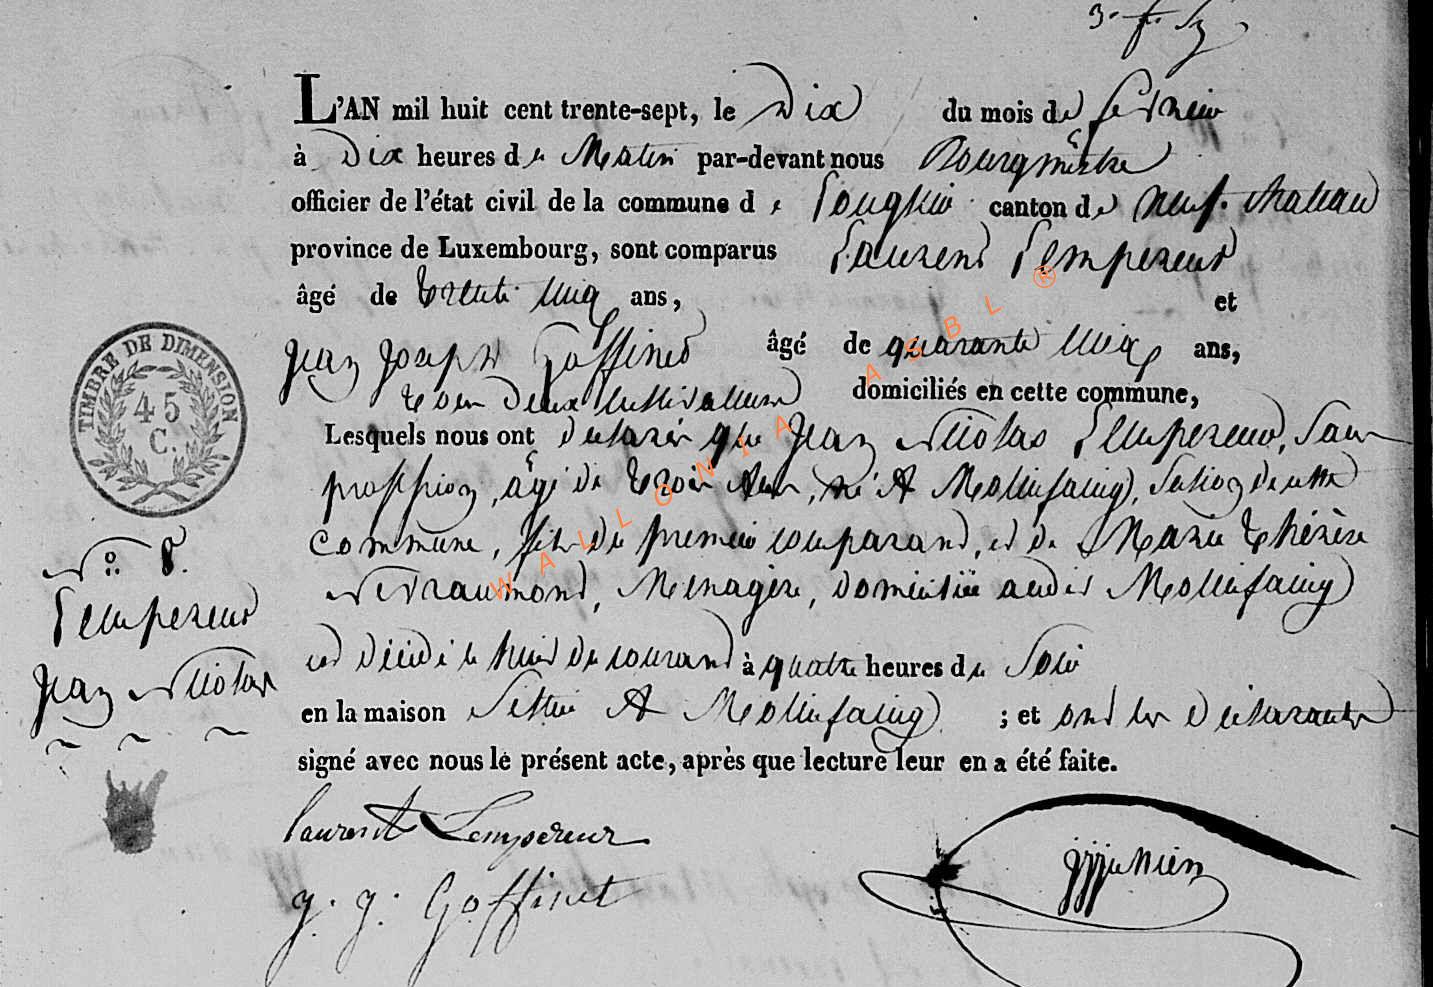 L'AN mil huit cent trente-sept, le Dix du mois de fevrier
à Dix heures de Matin par-devant nous Bourgmestre
officier de l'état civil de la commune de Longlier canton de neuf-chateau
province de Luxembourg, sont comparus Laurend Lempereur
âgé de trente cinq ans, et
Jean Joseph Goffined âgé de quarante cinq ans,
tous deux cultivateurs domiciliés en cette commune,
Lesquels nous ont declarés que Jean Nicolas Lempereur, sans
profession, âgé de trois ans, né A Mollifaing, section de cette
commune, fils du premier comparand, et de Marie thérèse
Merraumond, Menagère, domiciliée audit Mollifaing
est décédé le huit du courand à quatre heures de Soir
en la maison Sittuée A Mollifaing ; et ond les Déclarants
signé avec nous le présent acte, après que lecture leur en a été faite.
TIMBRE DE DIMENSION
45
C.
N° 8.
Lempereur
Jean Nicolas
Laurent Lempereur
J. J. Goffinet
WALLONIA ASBL ®